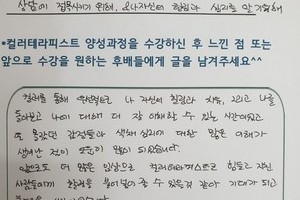 상담에 접목시키기 위해, &나자신의 힐링과 심리를 알기위해
*컬러테라피스트 양성과정을 수강하신 후 느낀 점 또는
앞으로 수강을 원하는 후배들에게 글을 남겨주세요^^
컬러를 통해 무엇보다도 나 자신의 힐링과 치유, 그리고 나를
돌아보고 나에 대해 더 잘 이해할 수 있는 시간이었고
또 몰랐던 감정들과 색채 심리에 대한 많은 이해가
생겨난 점이 도움이 많이 되었습니다.
앞으로도 더 많은 임상으로 컬러테라피스트로 힘들고 지친
사람들에게 활력을 불어넣어 줄 수 있을것 같아 기대가 되고